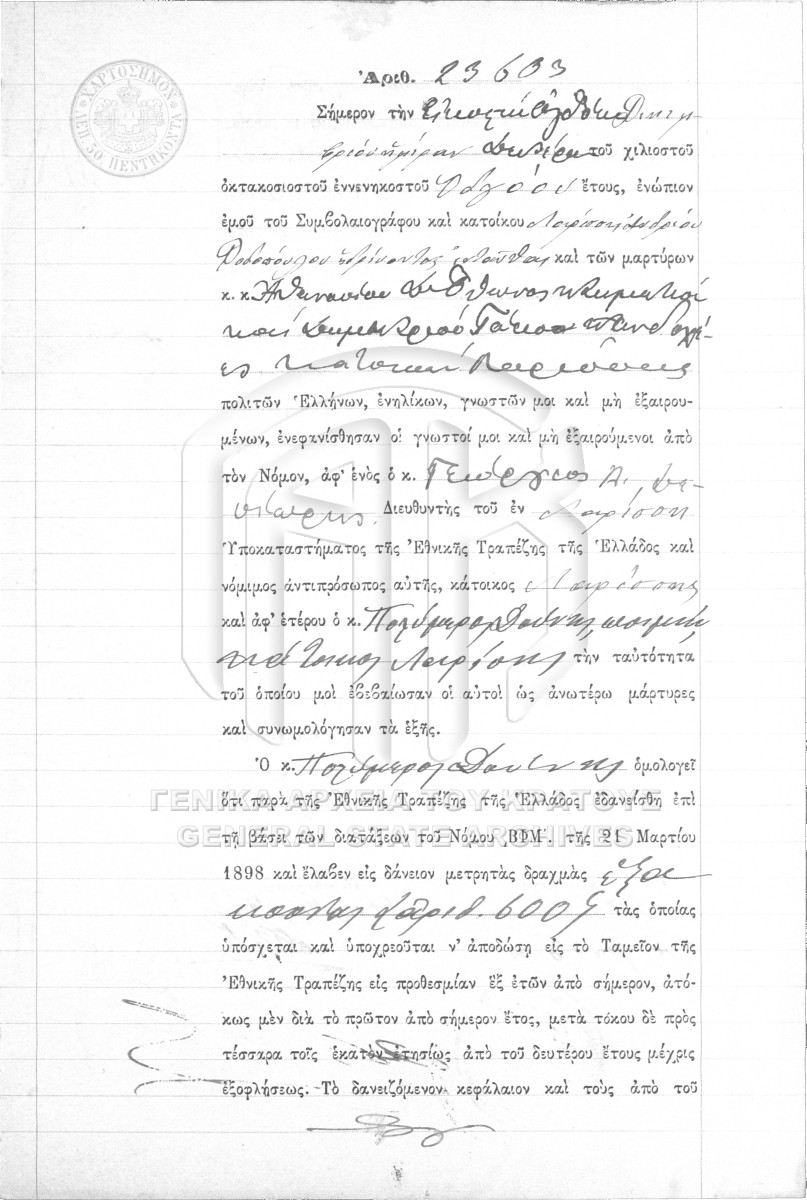 ΧΑΡΤΟΣΗΜΟΝ
ΛΕΠ. 50 ΠΕΝΤΗΚΟΝΤΑ
Ἀριθ. 23603
Σήμερον τὴν εἰκοστὴν ὀγδόην Δεκεμ-
βρίου ἡμέραν Δευτέραν τοῦ χιλιοστοῦ
ὀκτακοσιοστοῦ ἐννενηκοστοῦ ὀγδόου ἔτους, ἐνώπιον
ἐμοῦ τοῦ Συμβολαιογράφου καὶ κατοίκου Λαρίσσης Ἀνδρέου
Ροδοπούλου ἑδρεύοντος ἐνταῦθα καὶ τῶν μαρτύρων
κ. κ. Ἀθανασίου
καὶ Δημητρίου
κατοίκων Λαρίσσης
πολιτῶν Ἑλλήνων, ἐνηλίκων, γνωστῶν μοι καὶ μὴ ἐξαιρου-
μένων, ἐνεφανίσθησαν οἱ γνωστοί μοι καὶ μὴ ἐξαιρούμενοι ἀπὸ
τὸν Νόμον, ἀφ' ἑνὸς ὁ κ. Γεώργιος Α.
Διευθυντὴς τοῦ ἐν Λαρίσσῃ
Ὑποκαταστήματος τῆς Ἐθνικῆς Τραπέζης τῆς Ἑλλάδος καὶ
νόμιμος ἀντιπρόσωπος αὐτῆς, κάτοικος Λαρίσσης
καὶ ἀφ' ἑτέρου ὁ κ. Πολύμερος
κάτοικος Λαρίσσης τὴν ταὐτότητα
τοῦ ὁποίου μοὶ ἐβεβαίωσαν οἱ αὐτοὶ ὡς ἀνωτέρω μάρτυρες
καὶ συνωμολόγησαν τὰ ἑξῆς.
Ὁ κ. Πολύμερος ὁμολογεῖ
ὅτι παρὰ τῆς Ἐθνικῆς Τραπέζης τῆς Ἑλλάδος ἐδανείσθη ἐπὶ
ΓΕΝΙΚΑ ΑΡΧΕΙΑ ΤΟΥ ΚΡΑΤΟΥΣ
GENERAL STATE ARCHIVES
τῇ βάσει τῶν διατάξεων τοῦ Νόμου ͵ΒΦΜ΄. τῆς 21 Μαρτίου
1898 καὶ ἔλαβεν εἰς δάνειον μετρητὰς δραχμὰς ἑξα
κοσίας (ἀριθ. 600) τὰς ὁποίας
ὑπόσχεται καὶ ὑποχρεοῦται ν' ἀποδώσῃ εἰς τὸ Ταμεῖον τῆς
Ἐθνικῆς Τραπέζης εἰς προθεσμίαν ἓξ ἐτῶν ἀπὸ σήμερον, ἀτό-
κως μὲν διὰ τὸ πρῶτον ἀπὸ σήμερον ἔτος, μετὰ τόκου δὲ πρὸς
τέσσαρα τοῖς ἑκατὸν ἐτησίως ἀπὸ τοῦ δευτέρου ἔτους μέχρις
ἐξοφλήσεως. Τὸ δανειζόμενον κεφάλαιον καὶ τοὺς ἀπὸ τοῦ